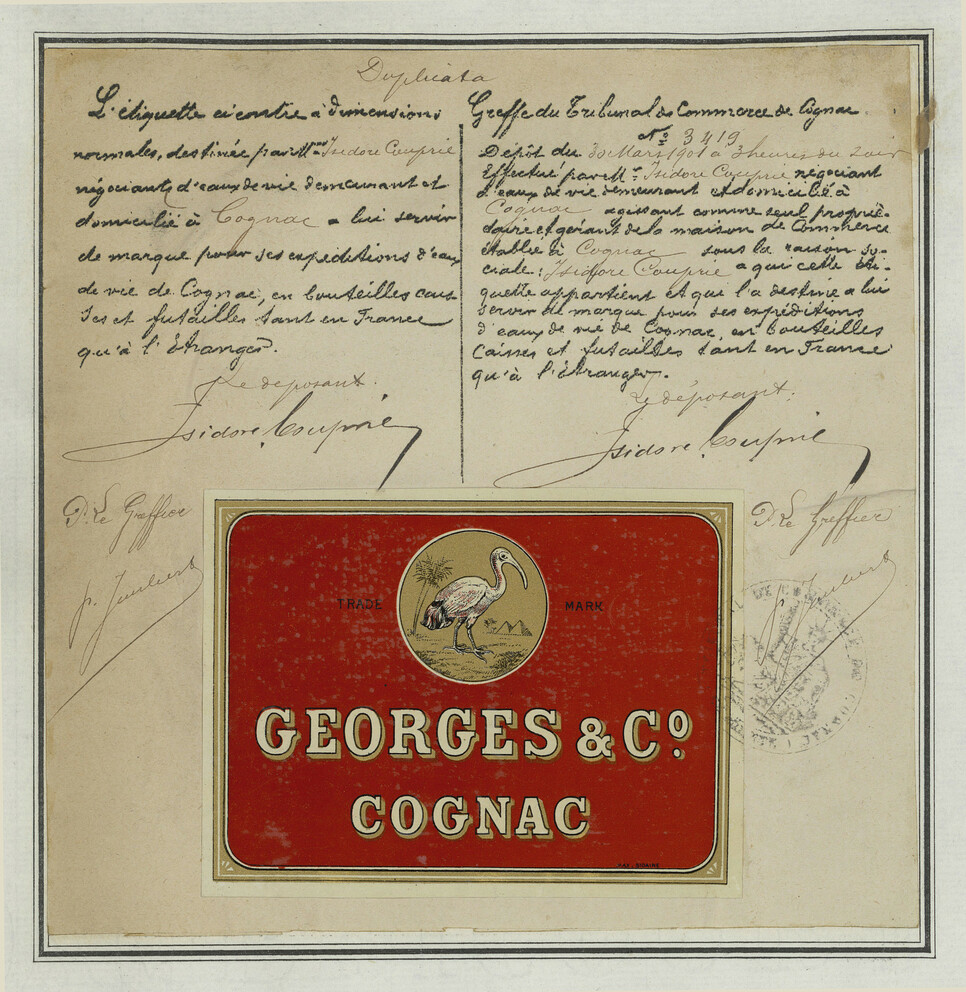 Duplicata
L'étiquette ci contre à dimensions
normales, destinée par Mr Isidore Couprie
négociant, d'eaux de vie demeurant et
domicilié à Cognac a lui servir
de marque pour ses expeditions d'eaux
de vie de Cognac, en bouteilles cais-
ses et futailles tant en France
qu'à l'étranger.
Le déposant.
Isidore Couprie
P. Le Greffier
Greffe du Tribunal de Commerce de Cognac
No 3419
Dépôt du 30 Mars 1901 à 3 heures du soir
Effectué par Mr Isidore Couprie négociant
d'eaux de vie demeurant et domicilié à
Cognac agissant comme seul proprié-
taire et gérant de la maison de Commerce
établie à Cognac sous la raison so-
ciale: Isidore Couprie a qui cette éti-
quette appartient et qui l'a destine a lui
servir de marque pour ses expéditions
d'eaux de vie de Cognac, en bouteilles
Caisses et futailles tant en France
qu'à l'étranger.
Le déposant.
Isidore Couprie
P. Le Greffier
TRADE MARK
GEORGES & Co.
COGNAC